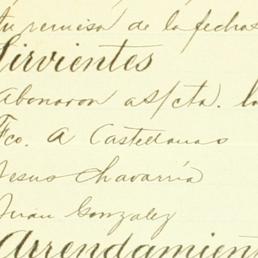 su remisa de la fecha
Sirvientes
Abonaron a s/cta. lo
Fco. A Castellanos
Jesus Chavarría
Juan Gonzalez
Arrendamient